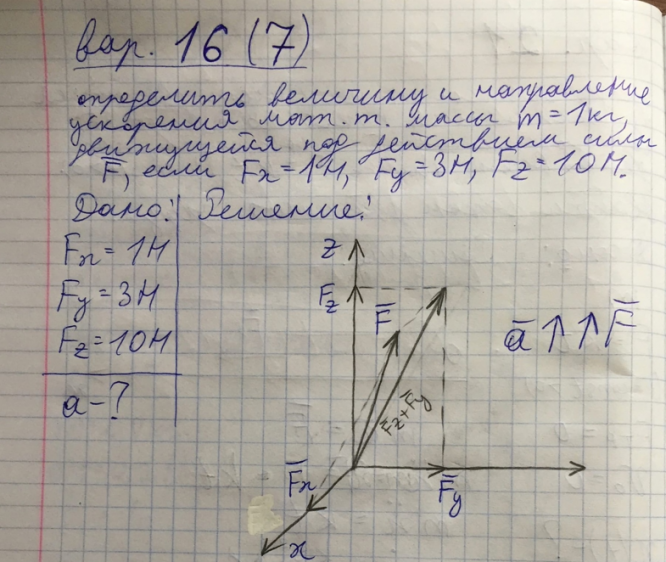 вар. 16 (7)
определить величину и направление
ускорения мат. т. массы m = 1кг,
движущейся под действием силы
F̅, если Fx = 1Н, Fy = 3Н, Fz = 10Н.
Дано: Решение:
Fx = 1Н
Fy = 3Н
Fz = 10Н
a - ?
z
Fz
F̅
a̅ ↑↑ F̅
F̅z + F̅y
F̅x
F̅y
x